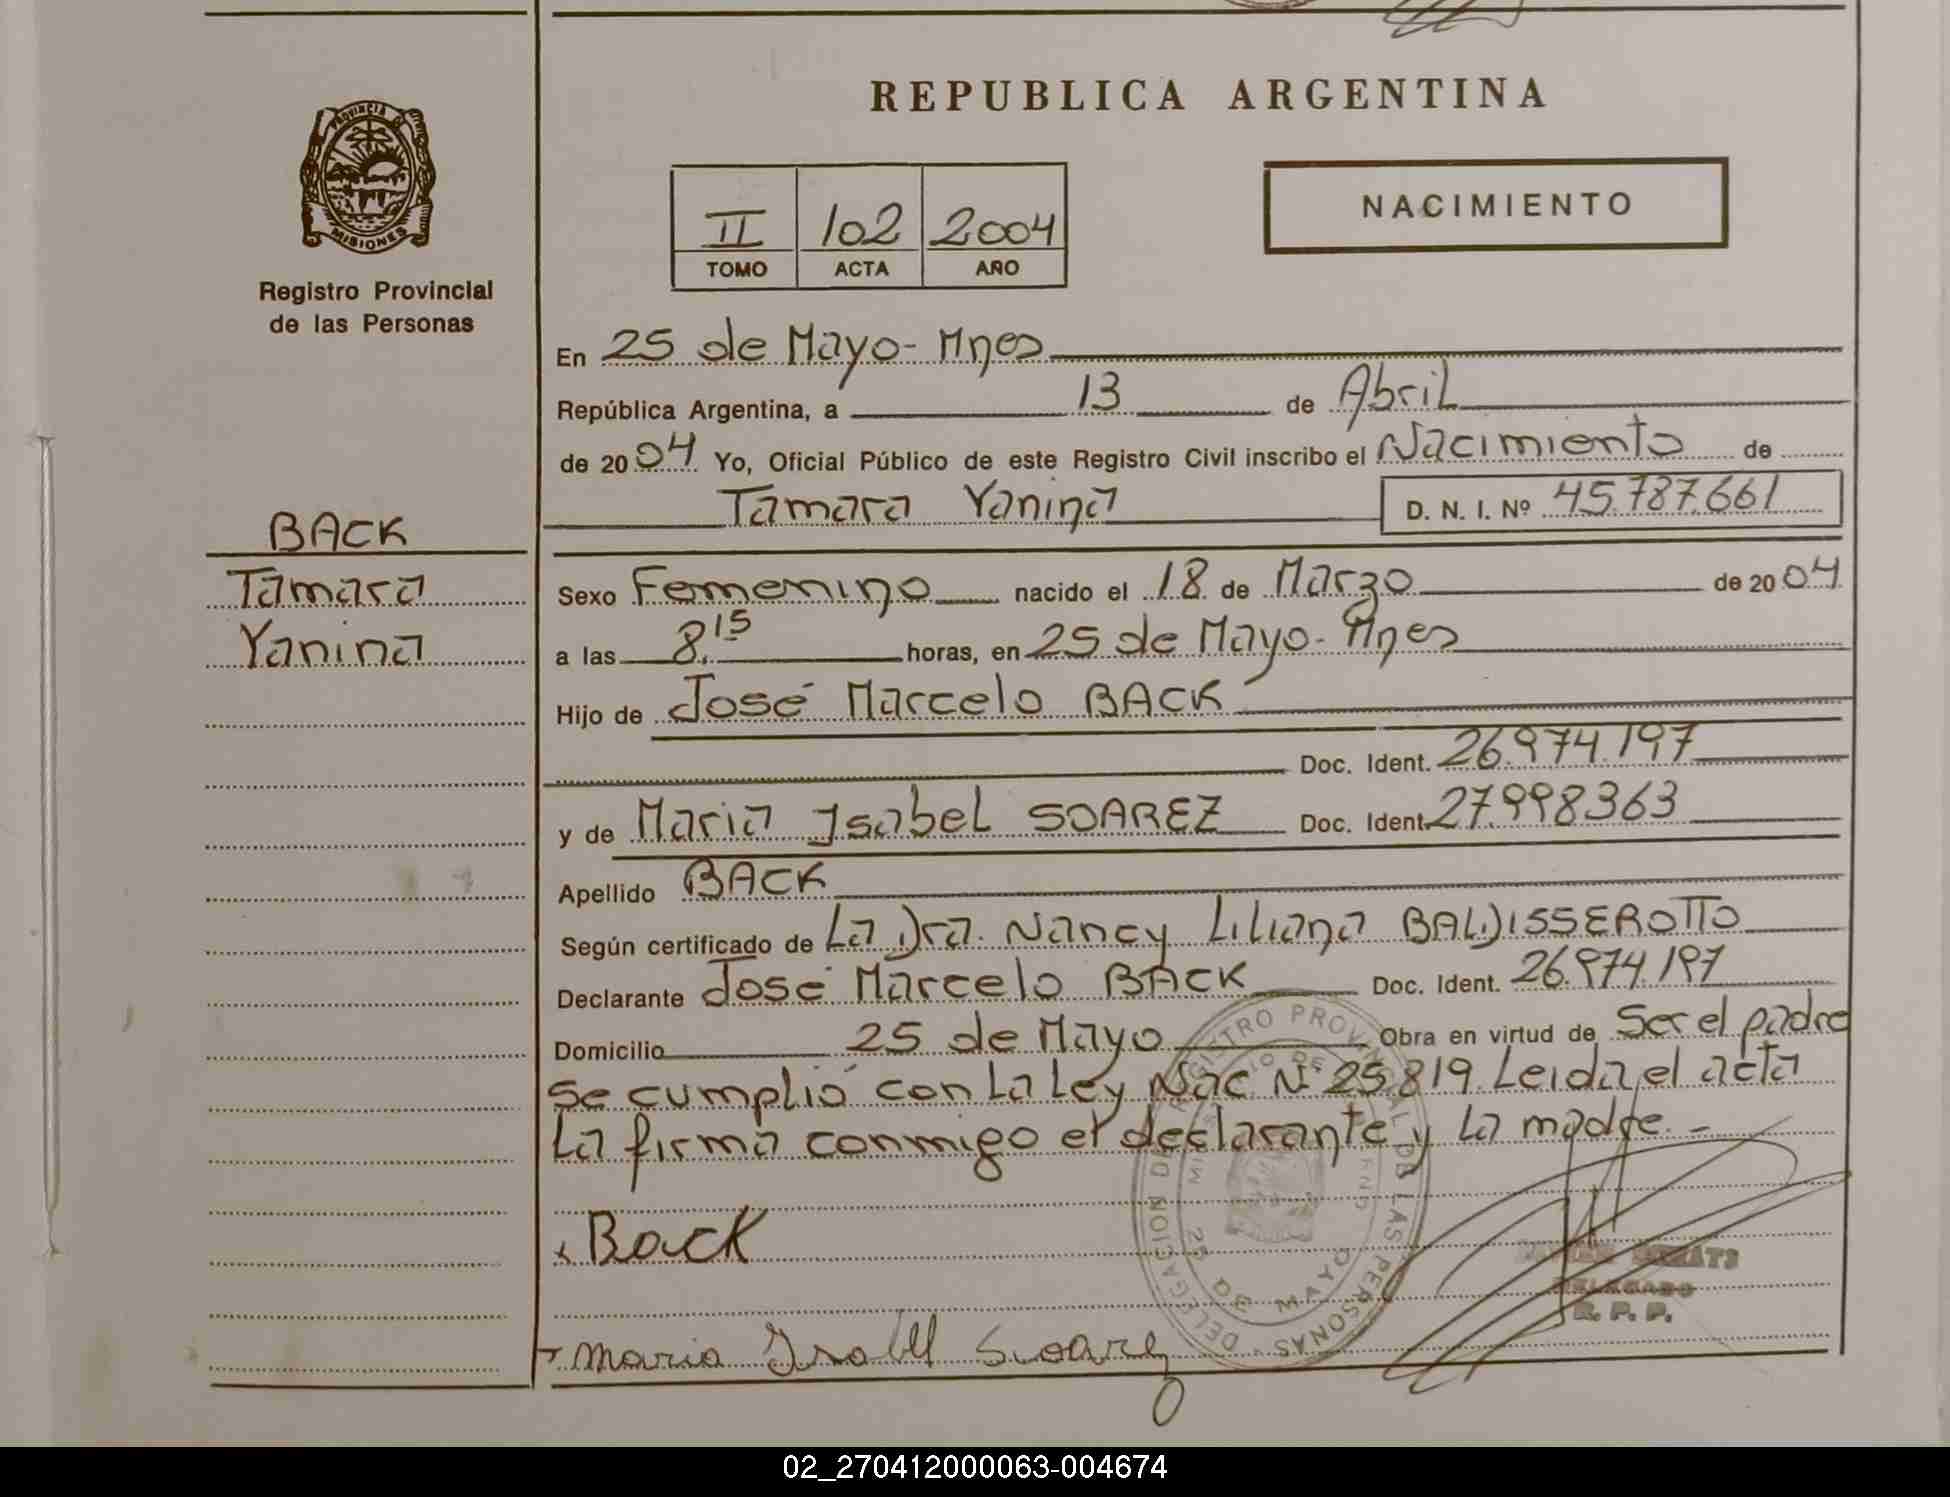 REPUBLICA ARGENTINA
PROVINCIA DE
MISIONES
Registro Provincial
de las Personas
II 102 2004
TOMO ACTA AÑO
NACIMIENTO
En 25 de Mayo - Mnes
República Argentina, a 13 de Abril
de 2004 Yo, Oficial Público de este Registro Civil inscribo el Nacimiento de
Tamara Yanina D. N. I. Nº 45.787.661
BACK
Tamara
Yanina
Sexo Femenino nacido el 18 de Marzo de 2004
a las 8,15 horas, en 25 de Mayo - Mnes
Hijo de José Marcelo BACK
Doc. Ident. 26.974.197
y de Maria Ysabel SOAREZ Doc. Ident. 27.998363
Apellido BACK
Según certificado de La Dra. Nancy Liliana BALDISSEROTTO
Declarante José Marcelo BACK Doc. Ident. 26.974.197
Domicilio 25 de Mayo Obra en virtud de Ser el padre
Se cumplió con La Ley Nac Nº 25.819. Leida el acta
La firma conmigo el declarante y La madre. -
DELEGACION DE REGISTRO PROVINCIAL DE LAS PERSONAS
25 DE MAYO
x Back
DELEGADO
R. P. P.
maria Isabel Soarez
02_270412000063-004674